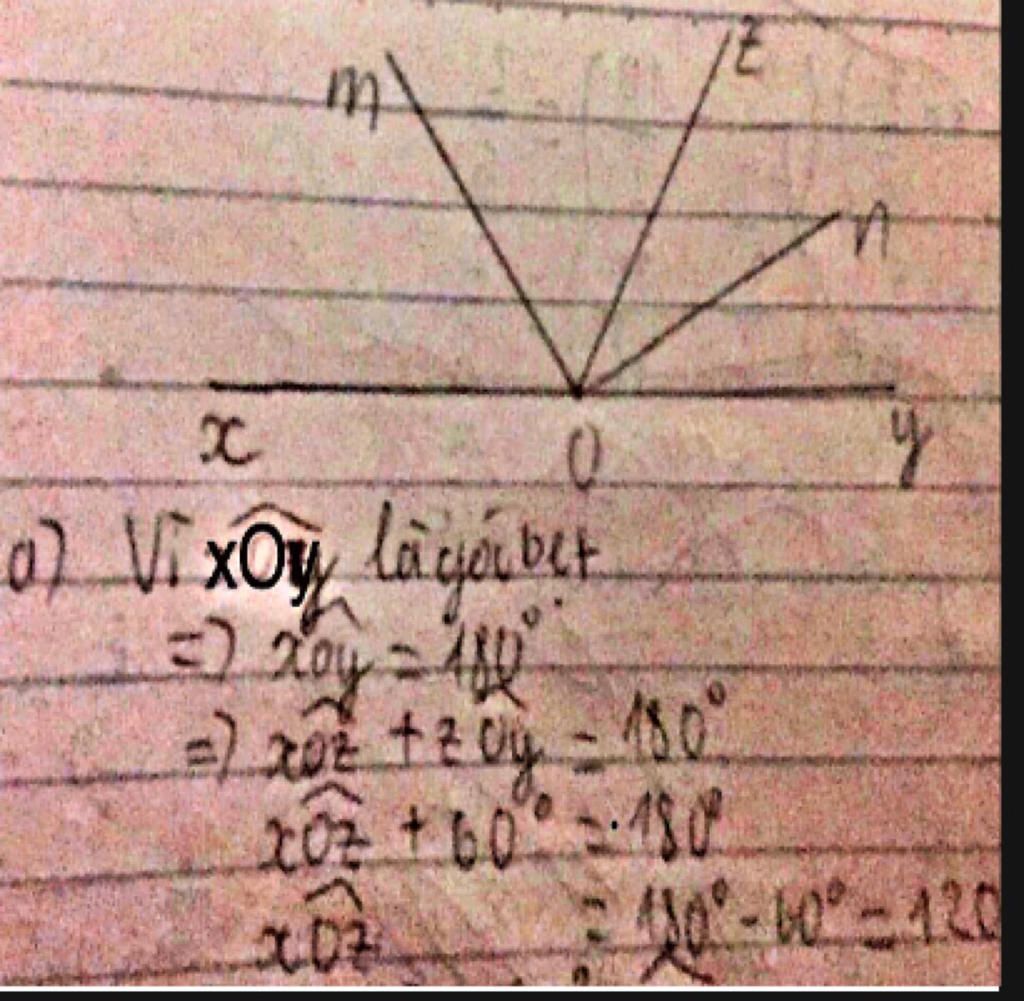 m
z
n
x
O
y
a) Vì xOy là góc bẹt
=> xOy = 180°
=> xOz + zOy = 180°
xOz + 60° = 180°
xOz = 180° - 60° = 120